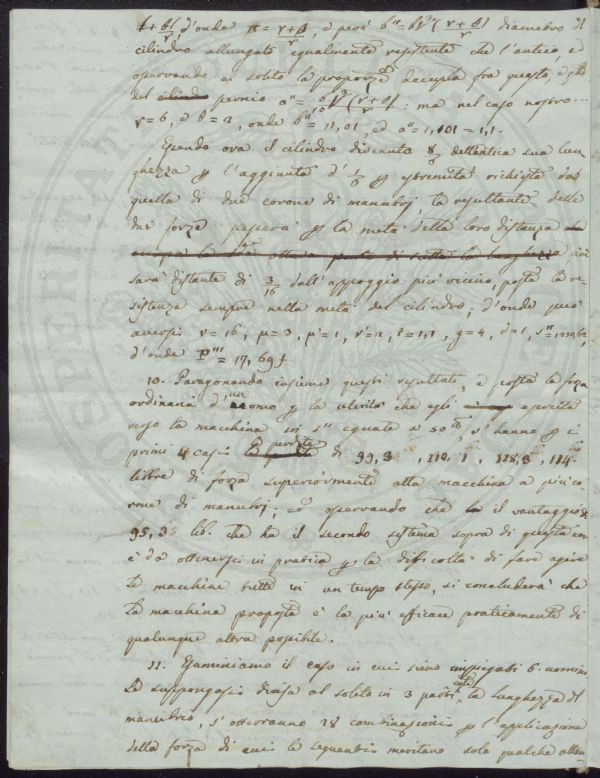 d'onde π = r+φ/r, e però b'' = b∛(r+φ/r) diametro del
cilindro allungato egualmente resistente che l'antico, e
operando al solito la proporz. decupla fra questo, e q.llo
del pernio a'' = b/10 ∛(r+φ/r) : ma nel caso nostro...
r = 6, onde b'' = 11,01, ed a'' = 1,101 = 1,1.
Essendo ora il cilindro diventato 8/6 dell'antica sua lun
ghezza p l'aggiunta d' 1/6 p estremità richiesta da
quella di due corone di manubrj, la resultante delle
due forze passerà p la metà della loro distanza
cioè
sarà distante di 3/16 dall'appoggio più vicino, posta la re
sistenza sempre nella metà del cilindro; d'onde però
avrassi v = 16, μ = 3, μ' = 1, t = 1,1, g = 4,
d'onde P''' = 17,69 f
10. Paragonando insieme questi resultati, e posta la forza
ordinaria d'un uomo p la celerità che egli esercita
verso la macchina in 1'' eguale a 50, s'hanno p i
primi 4 casi perdite di 99,3 , 110, , 118,3 , 114
libbre di forza superiormente alla macchina a più co
rone di manubrj; ed osservando che il vantaggio di
95,3 lib. che ha il secondo sistema sopra di questa non
è da ottenersi in pratica p la difficoltà di fare agire
le macchine tutte in un tempo stesso, si concluderà che
la macchina proposta è la più efficace praticamente di
qualunque altra possibile.
11. Esaminiamo il caso in cui sieno impiegati 6 uomini
Se suppongasi divisa al solito in 3 parti la lunghezza del
manubrio, s'osserveranno 28 combinazioni p l'applicazione
della forza di cui le seguenti meritano solo qualche atten